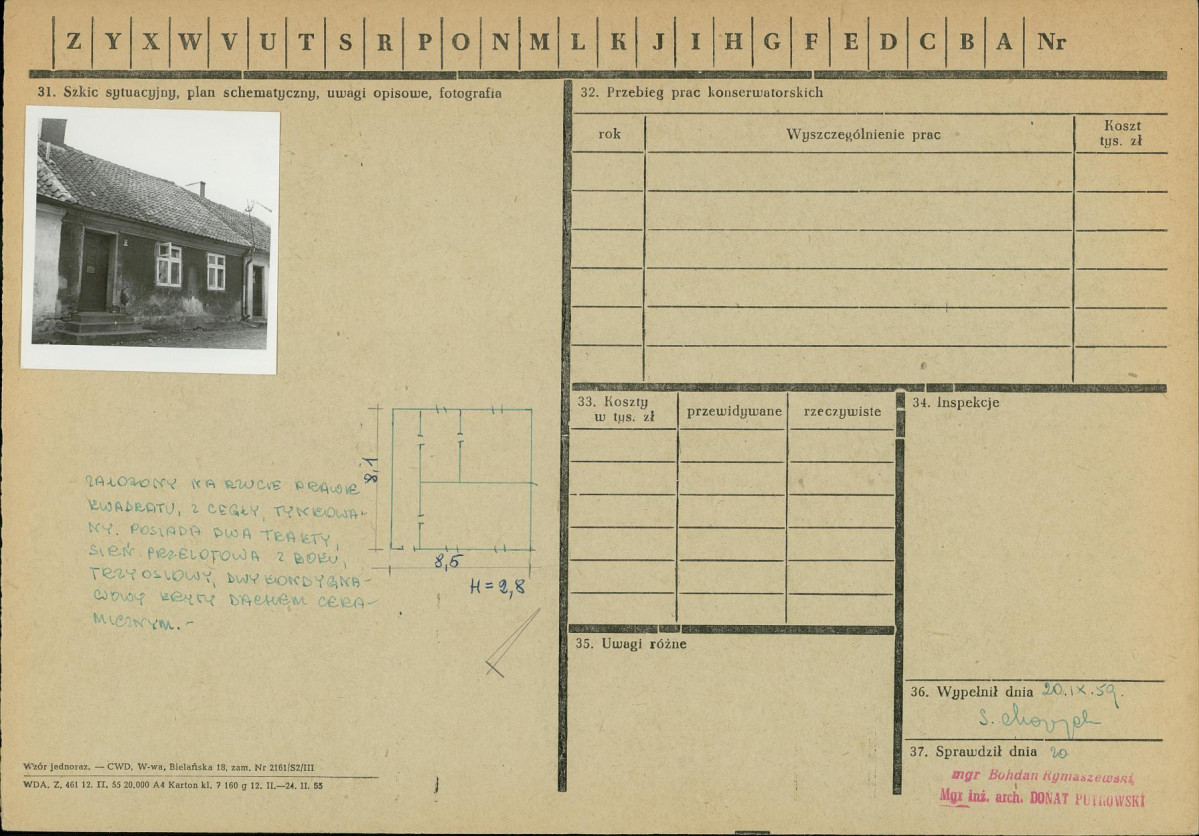 Z Y X W V U T S R P O N M L K J I H G F E D C B A Nr
31. Szkic sytuacyjny, plan schematyczny, uwagi opisowe, fotografia
8,1
8,5
H = 2,8
ZAŁOŻONY NA RZUCIE PRAWIE
KWADRATU, Z CEGŁY, TYNKOWA-
NY. POSIADA DWA TRAKTY,
SIEŃ PRZELOTOWA Z BOKU,
TRZYOSIOWY, DWYKONDYGNA-
CJOWY KRYTY DACHEM CERA-
MICZNYM.-
Wzór jednoraz. — CWD, W-wa, Bielańska 18, zam. Nr 2161/S2/III
WDA. Z. 461 12. II. 55 20.000 A4 Karton kl. 7 160 g 12. II.—24. II. 55
32. Przebieg prac konserwatorskich
rok Wyszczególnienie prac Koszt
tys. zł
33. Koszty
w tys. zł przewidywane rzeczywiste
34. Inspekcje
35. Uwagi różne
36. Wypełnił dnia 20.IX.59.
37. Sprawdził dnia 20
mgr Bohdan Rymaszewski
Mgr inż. arch. DONAT PUTKOWSKI